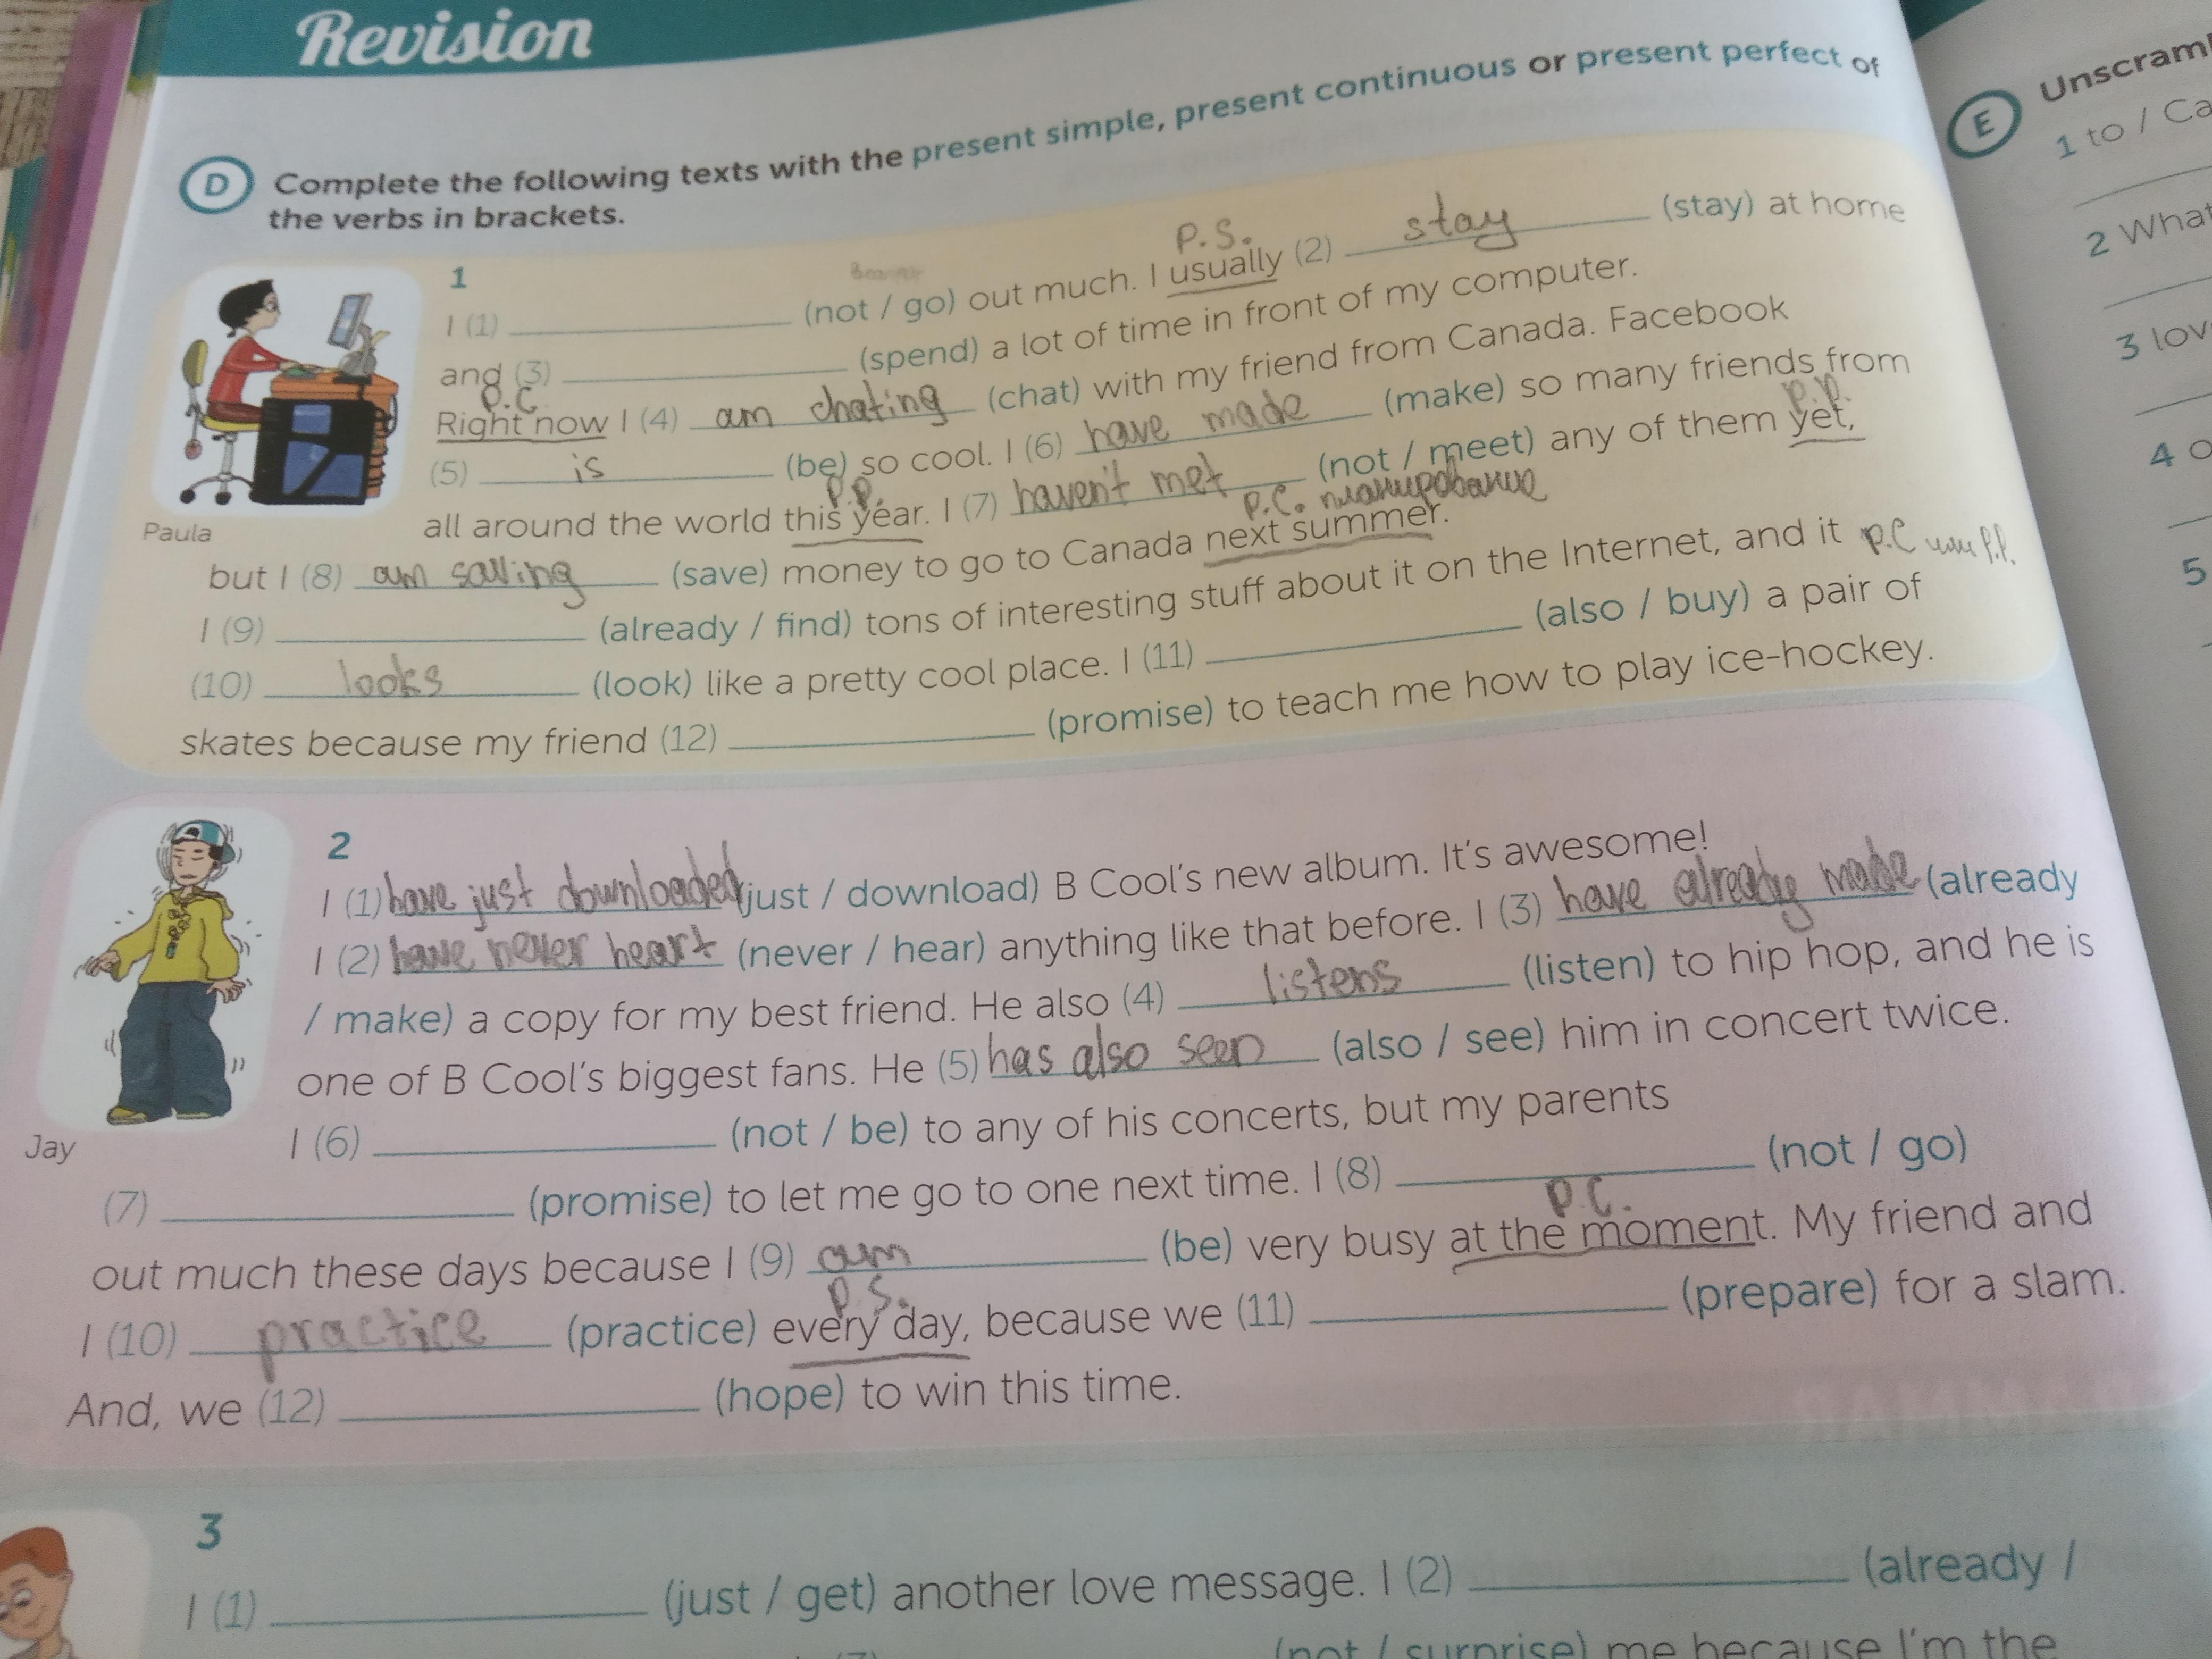 Revision
D Complete the following texts with the present simple, present continuous or present perfect of
the verbs in brackets.
1
P.S.
I (1) ____ (not / go) out much. I usually (2) stay (stay) at home
and (3) ____ (spend) a lot of time in front of my computer.
P.C
Right now I (4) am chating (chat) with my friend from Canada. Facebook
(5) is (be) so cool. I (6) have made (make) so many friends from
P.P. P.P.
all around the world this year. I (7) haven't met (not / meet) any of them yet,
P.C. планирование
but I (8) am saving (save) money to go to Canada next summer.
I (9) ____ (already / find) tons of interesting stuff about it on the Internet, and it P.C или P.P.
(10) looks (look) like a pretty cool place. I (11) ____ (also / buy) a pair of
skates because my friend (12) ____ (promise) to teach me how to play ice-hockey.
Paula
2
I (1) have just downloaded (just / download) B Cool's new album. It's awesome!
I (2) have never heart (never / hear) anything like that before. I (3) have already made (already
/ make) a copy for my best friend. He also (4) listens (listen) to hip hop, and he is
one of B Cool's biggest fans. He (5) has also seen (also / see) him in concert twice.
I (6) ____ (not / be) to any of his concerts, but my parents
Jay
(7) ____ (promise) to let me go to one next time. I (8) ____ (not / go)
P.C.
out much these days because I (9) am (be) very busy at the moment. My friend and
P.S.
I (10) practice (practice) every day, because we (11) ____ (prepare) for a slam.
And, we (12) ____ (hope) to win this time.
3
I (1) ____ (just / get) another love message. I (2) ____ (already /
(not / surprise) me because I'm the
E Unscram
1 to / Ca
2 What
3 lov
4 o
5